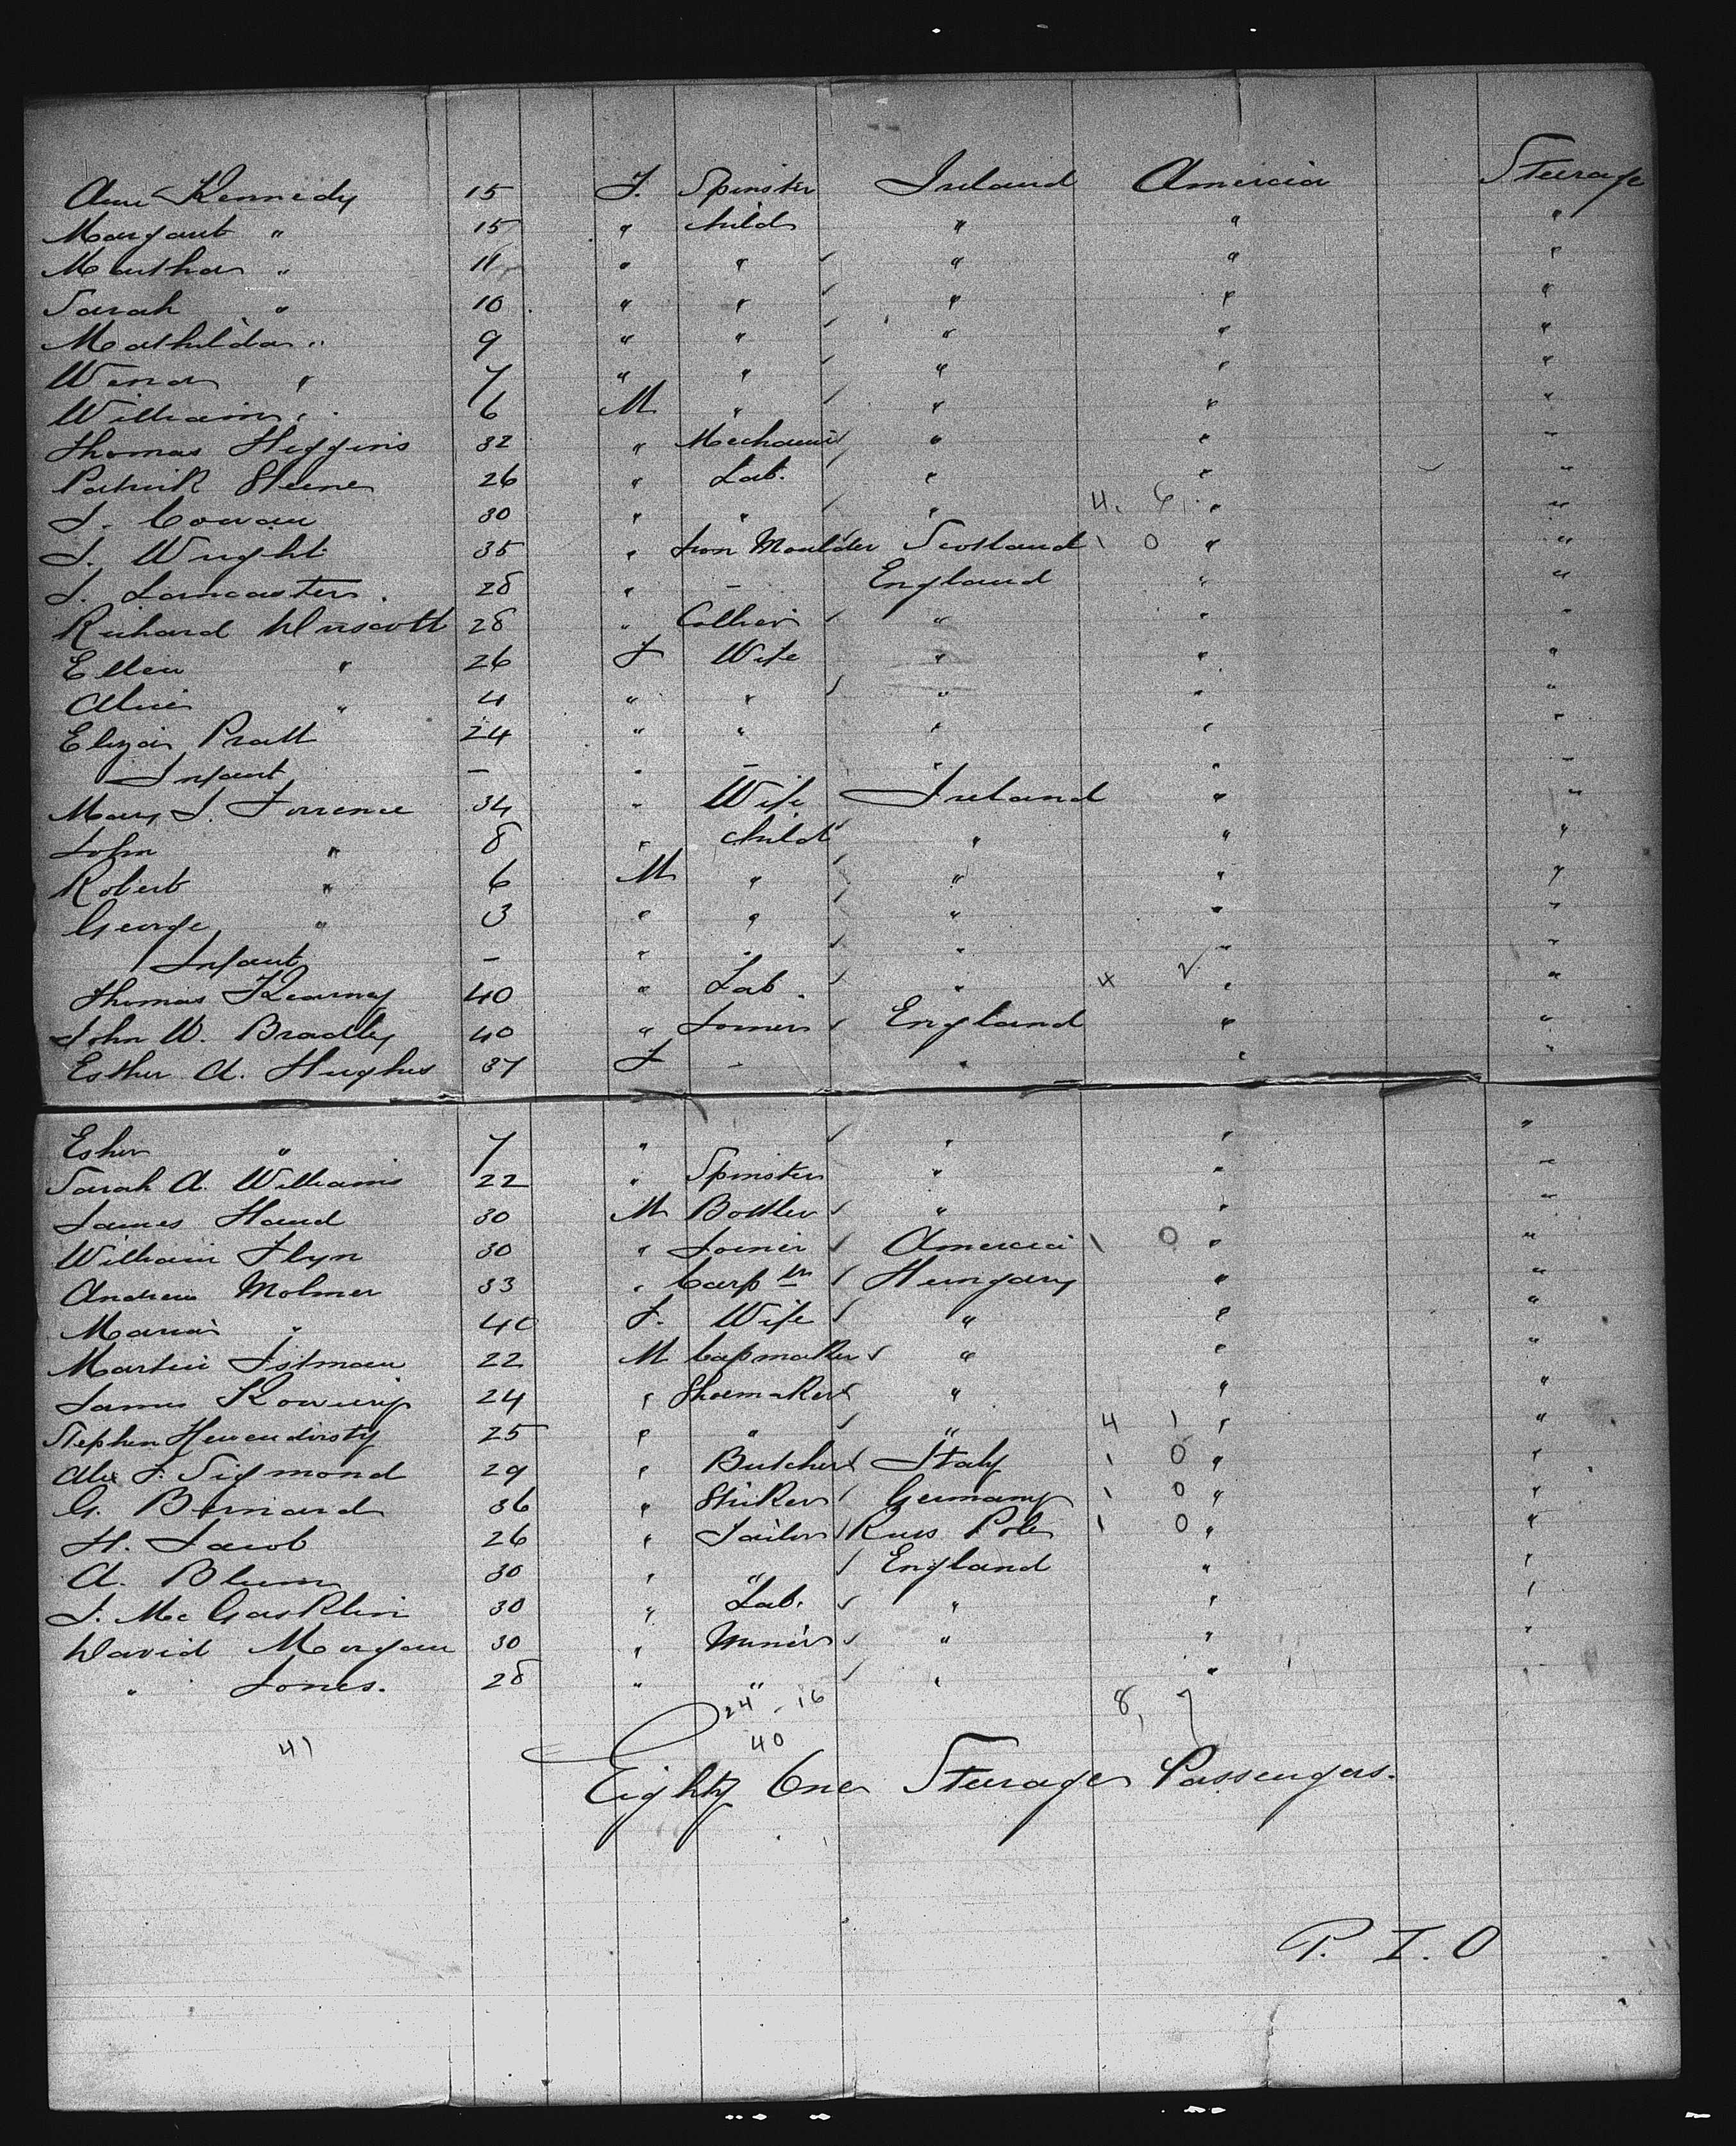 Ann Kennedy 15 F. Spinster Ireland America Steerage
Margaret " 15 " Child " " "
Martha " 11 " " " " "
Sarah " 10 " " " " "
Mathilda " 9 " " " " "
" 7 " " " " "
William " 6 M " " " "
Thomas Higgins 32 " Mechanic " " "
Patrick 26 " Lab. " " "
J. Cowan 30 " " " 4. 6. " "
J. Wright 35 " Iron Moulder Scotland 1 0 " "
J. Lancaster. 28 " - England " "
Richard Driscott 28 " Collier " " "
Ellen " 26 F Wife " " "
Alice " 4 " " " " "
Eliza Pratt 24 " " " " "
Infant - " - " " "
Mary J. Torrence 34 " Wife Ireland " "
John " 8 " Child " " "
Robert " 6 M " " " "
George " 3 " " " " "
Infant - " " " " "
Thomas Kearney 40 " Lab. " " "
John W. Bradley 40 " Joiner England " "
Esther A. Hughes 37 F - " " "
Esher " 7 " " " "
Sarah A. Williams 22 " Spinster " " "
James Hand 30 M Bottler " " "
William Flyn 30 " Joiner America 1 0 " "
Andrew Molmer 33 " Carptr Hungary " "
Maria " 40 F. Wife " " "
Martin Istman 22 M Capmaker " " "
James 24 " Shoemaker " " "
Stephen 25 " " " 4 1 " "
Alex J. Sigmond 29 " Butcher Italy 1 0 " "
G. Bernard 36 " Striker Germany 1 0 " "
H. Jacob 26 " Tailor Russ Pole 1 0 " "
A. Blum 30 " " England " "
J. Mc Gasklin 30 " Lab. " " "
David Morgan 30 " Miner " " "
" Jones. 28 " " " " "
24 - 16 8, 7
41 40
Eighty One Steerage Passengers.
P. T. O